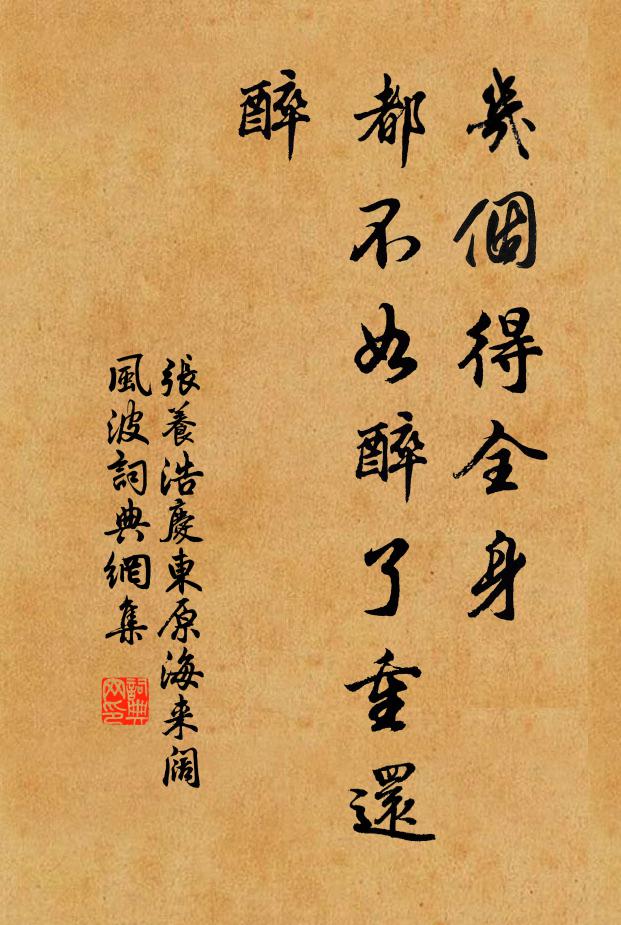 幾個得全身
都不如醉了重還
醉
張養浩慶東原海來闊
風波詞典網集
詞典
网印